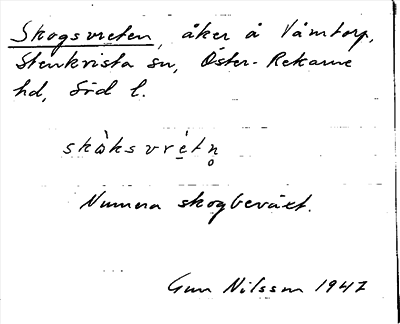 Skogsvreten, åker å Våmtorp,
Stenkvista sn, Öster-Rekarne
hd, Söd l.
skòksvrétn̥
Numera skogbeväxt.
Gun Nilsson 1947